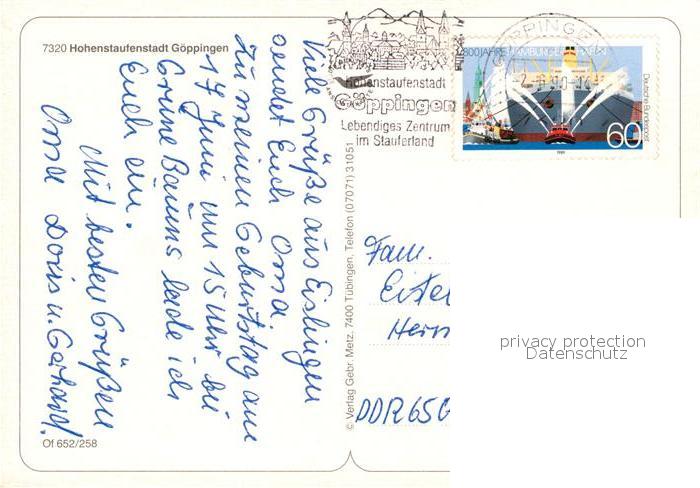 7320 Hohenstaufenstadt Göppingen
Viele Grüße aus Eislingen
sendet Euch Oma
Zu meinen Geburtstag am
17 Juni um 15 Uhr bei
Grüne Bäums lade ich
Euch ein.
Mit besten Grüßen
Oma Doris u. Gerhard.
Of 652/258
© Verlag Gebr. Metz, 7400 Tübingen, Telefon (07071) 31051
Hohenstaufenstadt
Göppingen
Lebendiges Zentrum
im Stauferland
GÖPPINGEN
800 JAHRE HAMBURGER HAFEN
Deutsche Bundespost
60
1989
Fam.
DDR 65
privacy protection
Datenschutz